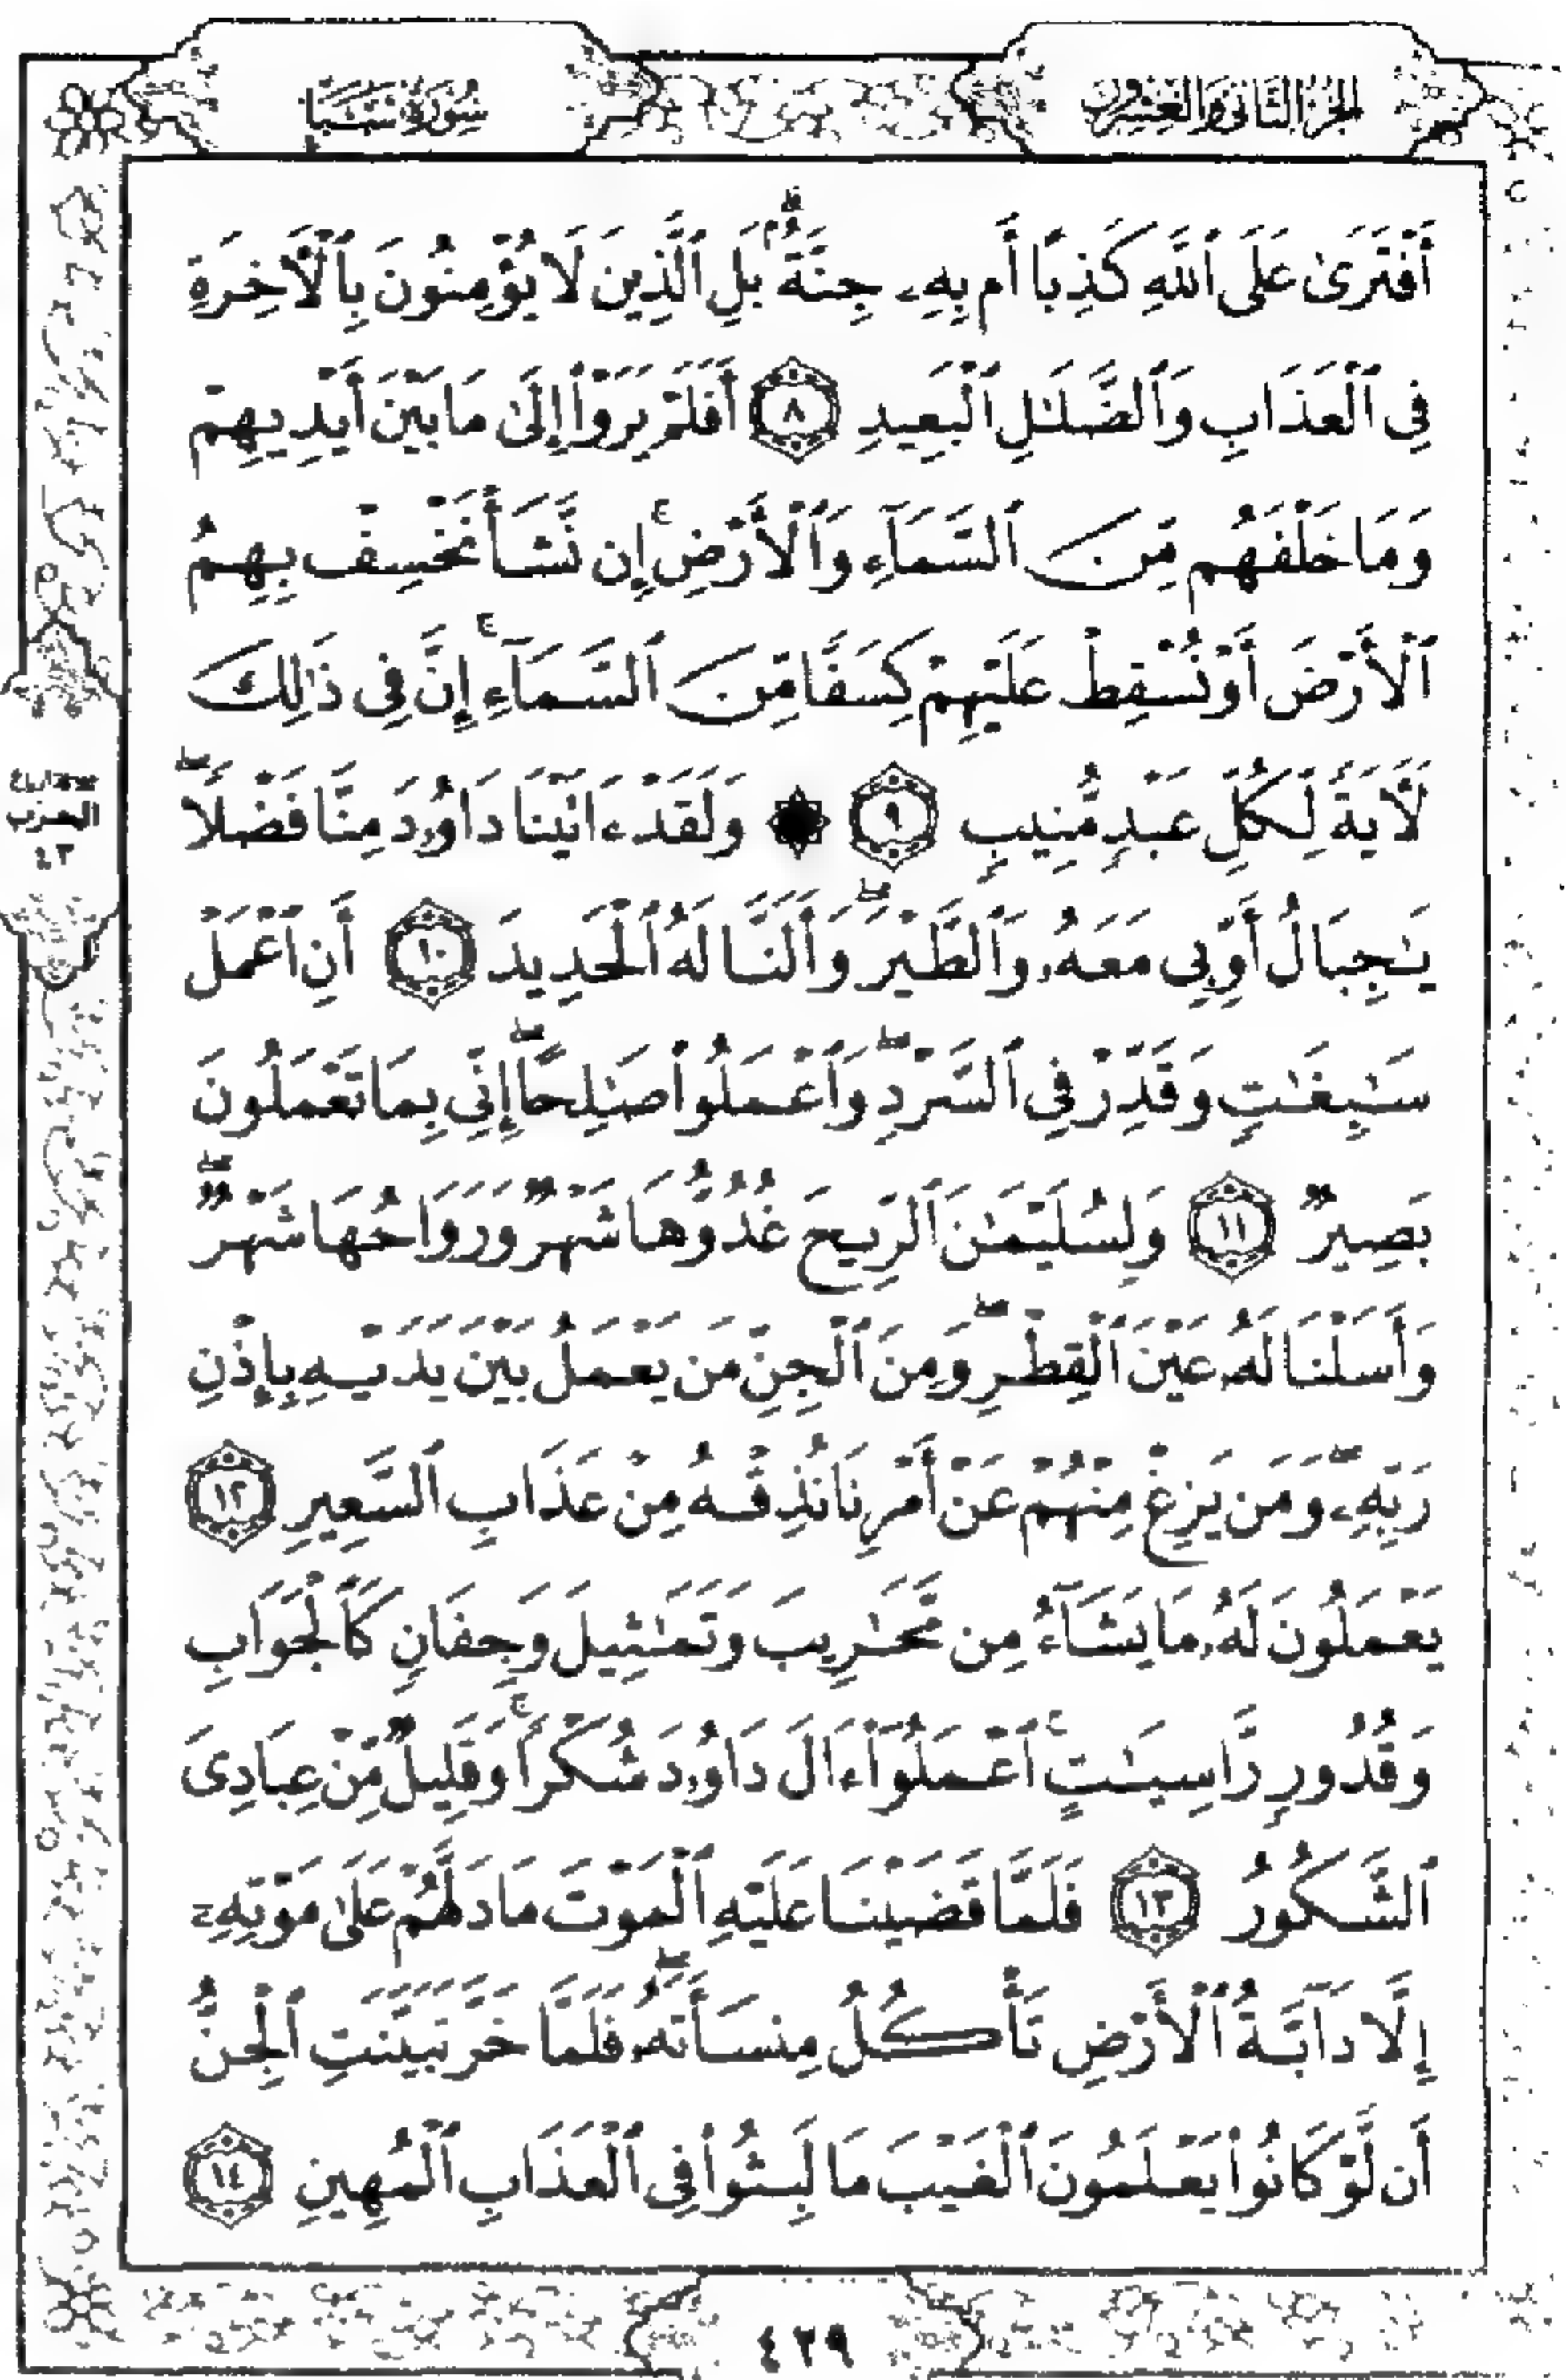 الجزء الثاني والعشرون
سورة سبإ
أَفْتَرَىٰ عَلَى ٱللَّهِ كَذِبًا أَم بِهِۦ جِنَّةٌۢ ۗ بَلِ ٱلَّذِينَ لَا يُؤْمِنُونَ بِٱلْأَخِرَةِ
فِى ٱلْعَذَابِ وَٱلضَّلَـٰلِ ٱلْبَعِيدِ ٨ أَفَلَمْ يَرَوْا۟ إِلَىٰ مَا بَيْنَ أَيْدِيهِمْ
وَمَا خَلْفَهُم مِّنَ ٱلسَّمَآءِ وَٱلْأَرْضِ ۚ إِن نَّشَأْ نَخْسِفْ بِهِمُ
ٱلْأَرْضَ أَوْ نُسْقِطْ عَلَيْهِمْ كِسَفًا مِّنَ ٱلسَّمَآءِ ۚ إِنَّ فِى ذَٰلِكَ
لَـَٔايَةً لِّكُلِّ عَبْدٍ مُّنِيبٍ ٩ ۞ وَلَقَدْ ءَاتَيْنَا دَاوُۥدَ مِنَّا فَضْلًا ۖ
يَـٰجِبَالُ أَوِّبِى مَعَهُۥ وَٱلطَّيْرَ ۖ وَأَلَنَّا لَهُ ٱلْحَدِيدَ ١٠ أَنِ ٱعْمَلْ
سَـٰبِغَـٰتٍ وَقَدِّرْ فِى ٱلسَّرْدِ ۖ وَٱعْمَلُوا۟ صَـٰلِحًا ۖ إِنِّى بِمَا تَعْمَلُونَ
بَصِيرٌ ١١ وَلِسُلَيْمَـٰنَ ٱلرِّيحَ غُدُوُّهَا شَهْرٌ وَرَوَاحُهَا شَهْرٌ ۖ
وَأَسَلْنَا لَهُۥ عَيْنَ ٱلْقِطْرِ ۖ وَمِنَ ٱلْجِنِّ مَن يَعْمَلُ بَيْنَ يَدَيْهِ بِإِذْنِ
رَبِّهِۦ ۖ وَمَن يَزِغْ مِنْهُمْ عَنْ أَمْرِنَا نُذِقْهُ مِنْ عَذَابِ ٱلسَّعِيرِ ١٢
يَعْمَلُونَ لَهُۥ مَا يَشَآءُ مِن مَّحَـٰرِيبَ وَتَمَـٰثِيلَ وَجِفَانٍ كَٱلْجَوَابِ
وَقُدُورٍ رَّاسِيَـٰتٍ ۚ ٱعْمَلُوٓا۟ ءَالَ دَاوُۥدَ شُكْرًا ۚ وَقَلِيلٌ مِّنْ عِبَادِىَ
ٱلشَّكُورُ ١٣ فَلَمَّا قَضَيْنَا عَلَيْهِ ٱلْمَوْتَ مَا دَلَّهُمْ عَلَىٰ مَوْتِهِۦٓ
إِلَّا دَآبَّةُ ٱلْأَرْضِ تَأْكُلُ مِنسَأَتَهُۥ ۖ فَلَمَّا خَرَّ تَبَيَّنَتِ ٱلْجِنُّ
أَن لَّوْ كَانُوا۟ يَعْلَمُونَ ٱلْغَيْبَ مَا لَبِثُوا۟ فِى ٱلْعَذَابِ ٱلْمُهِينِ ١٤
الحزب
٤٣
٤٢٩